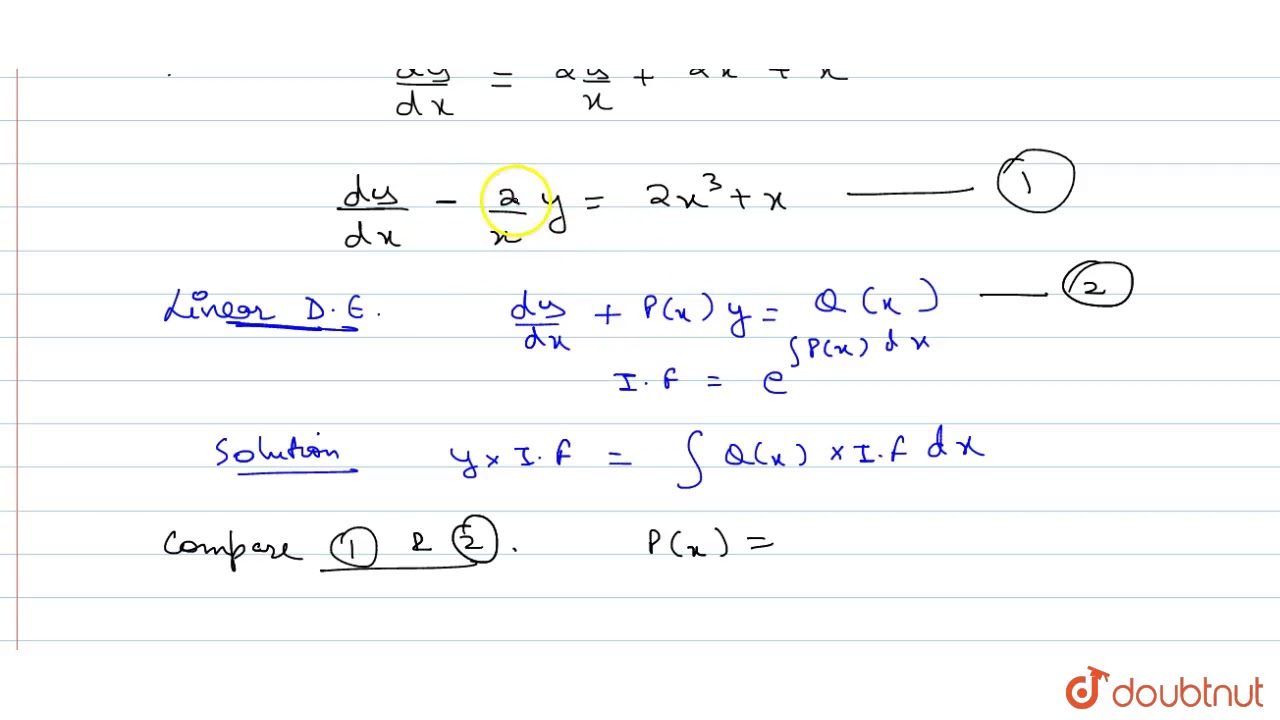 dy/dx = 2y/x + 2x + x
dy/dx - 2/x y = 2x³ + x ——— ①
Linear D.E. dy/dx + P(x) y = Q(x) —— ②
I.F = e^∫P(x) dx
Solution y × I.F = ∫ Q(x) × I.F dx
Compare ① & ②. P(x) =
doubtnut